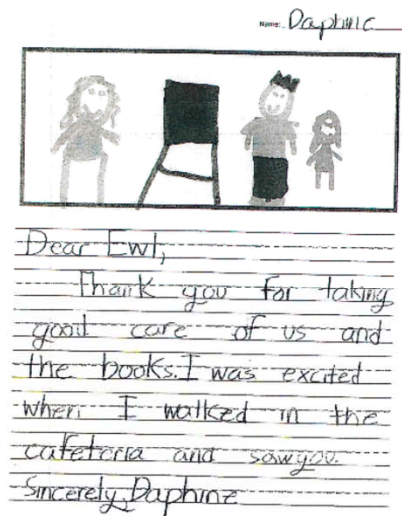 Name: Daphine
Dear Ewl,
Thank you for taking
good care of us and
the books. I was excited
when I walked in the
cafeteria and saw you.
Sincerely, Daphine